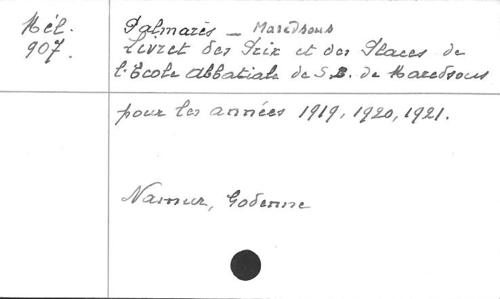 Mél.
907.
Palmarès — Maredsous
Livret des Prix et des Places de
l'Ecole Abbatiale de S. B. de Maredsous
pour les années 1919, 1920, 1921.
Namur, Godenne